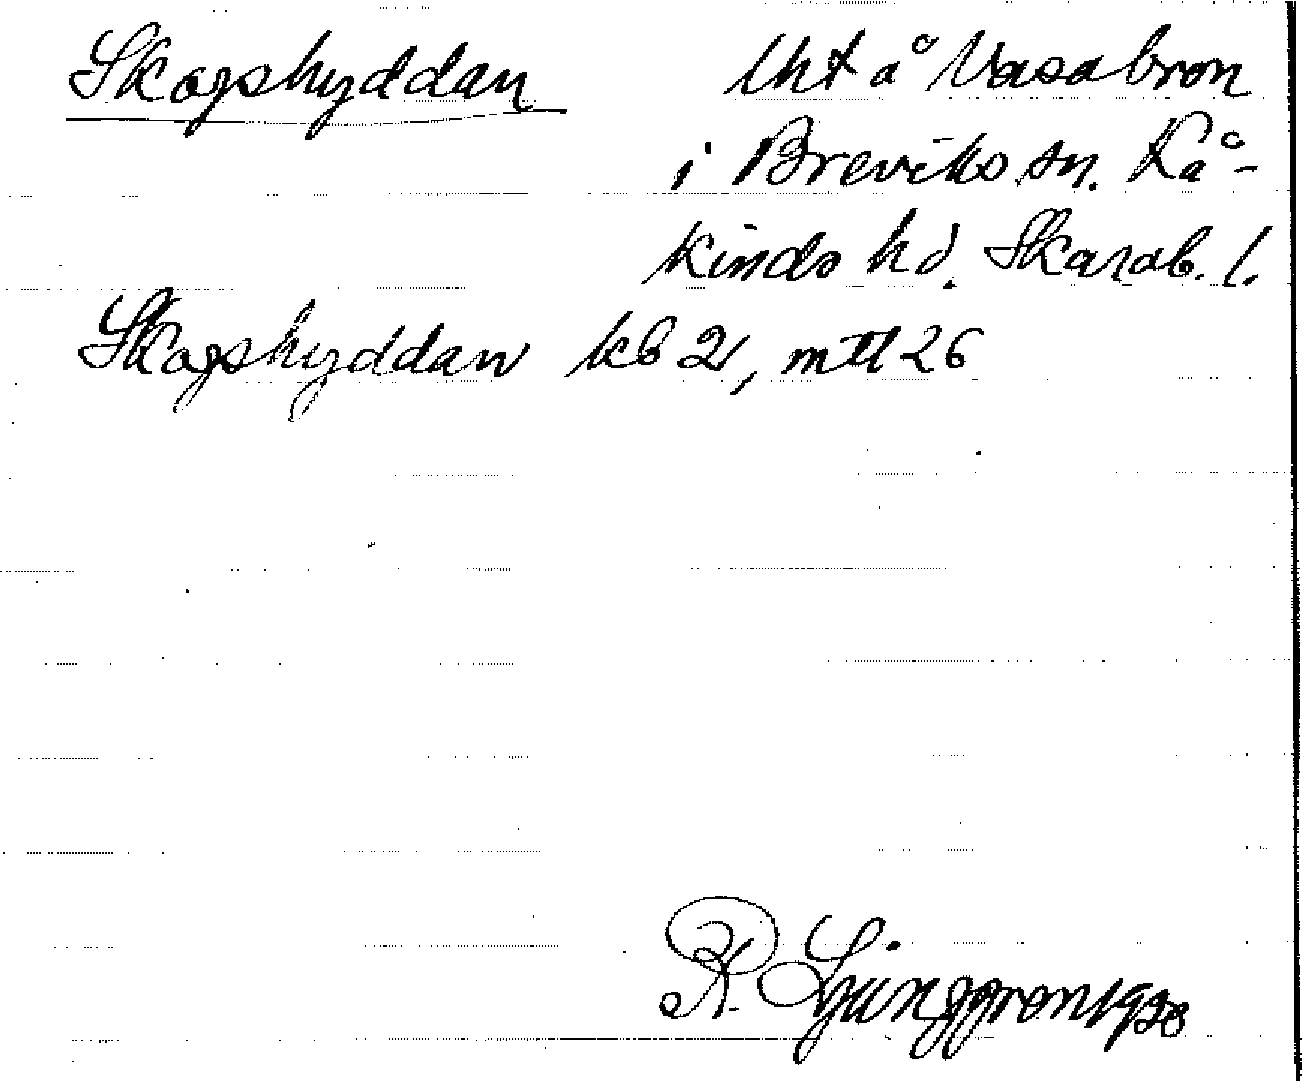 Skogshyddan
lht å Vasabron
i Breviks sn. Kå-
kinds hd. Skarab. l.
Skogshyddan kb 2, mtl 26
R. Ljunggren 1938